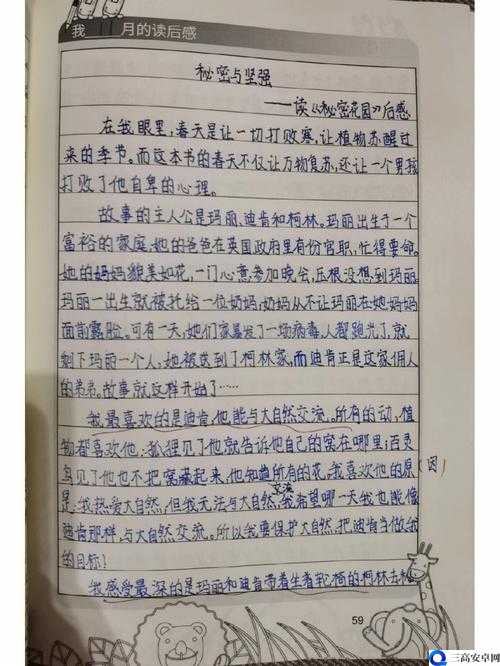 我 月的读后感
秘密与坚强
——读《秘密花园》后感
在我眼里,春天是让一切打败寒,让植物苏醒过
来的季节。而这本书的春天不仅让万物复苏,还让一个男孩
打败了他自卑的心理。
故事的主人公是玛丽、迪肯和柯林。玛丽出生于一个
富裕的家庭,她的爸爸在英国政府里有份官职,忙得要命。
她的妈妈貌美如花,一门心意参加晚会,压根没想到玛丽。
玛丽一出生就被托给一位奶妈,奶妈从不让玛丽在她妈妈
面前露脸。可有一天,她们家暴发了一场病毒,人都跑光了,就
剩下玛丽一个人,她被送到了柯林家,而迪肯正是这家佣人
的弟弟。故事就这样开始了……
我最喜欢的是迪肯,他能与大自然交流。所有的动,植
物都喜欢他:狐狸见了他就告诉他自己的窝在哪里;百灵
鸟见了他也不把窝藏起来,他知道所有的花。我喜欢他的原(因)
是:我热爱大自然,但我无法与大自然交流,我希望哪一天我也能像
迪肯那样,与大自然交流。所以我要保护大自然,把迪肯当做我
的目标!
我感受最深的是玛丽和迪肯带着坐着轮椅的柯林去秘
59
三高安卓网